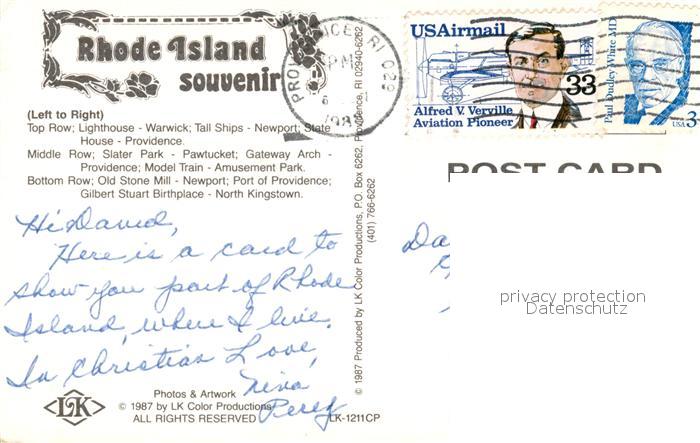 Rhode Island
souvenir
(Left to Right)
Top Row; Lighthouse - Warwick; Tall Ships - Newport; State
House - Providence.
Middle Row; Slater Park - Pawtucket; Gateway Arch -
Providence; Model Train - Amusement Park.
Bottom Row; Old Stone Mill - Newport; Port of Providence;
Gilbert Stuart Birthplace - North Kingstown.
Hi David,
Here is a card to
show you part of Rhode
Island, where I live.
In Christian Love,
Nina
Perey
Photos & Artwork
© 1987 by LK Color Productions
ALL RIGHTS RESERVED
LK
LK-1211CP
© 1987 Produced by LK Color Productions, P.O. Box 6262, Providence, RI 02940-6262
(401) 766-6262
PROVIDENCE, RI 029
PM
USAirmail
33
Alfred V. Verville
Aviation Pioneer
Paul Dudley White MD
USA 3
POST CARD
Da
privacy protection
Datenschutz